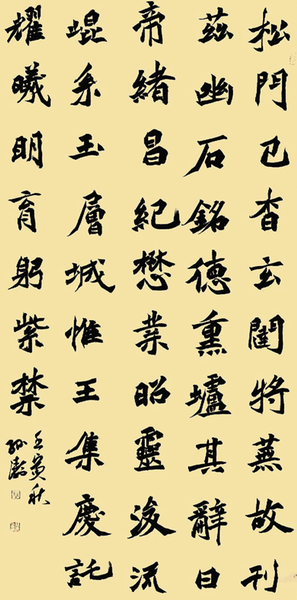 松門已杳玄闥將蕪故刊
茲幽石銘德熏壚其辭曰
帝緒昌紀懋業昭靈浚流
崐系玉層城惟王集慶託
耀曦明育躬紫禁
壬寅秋